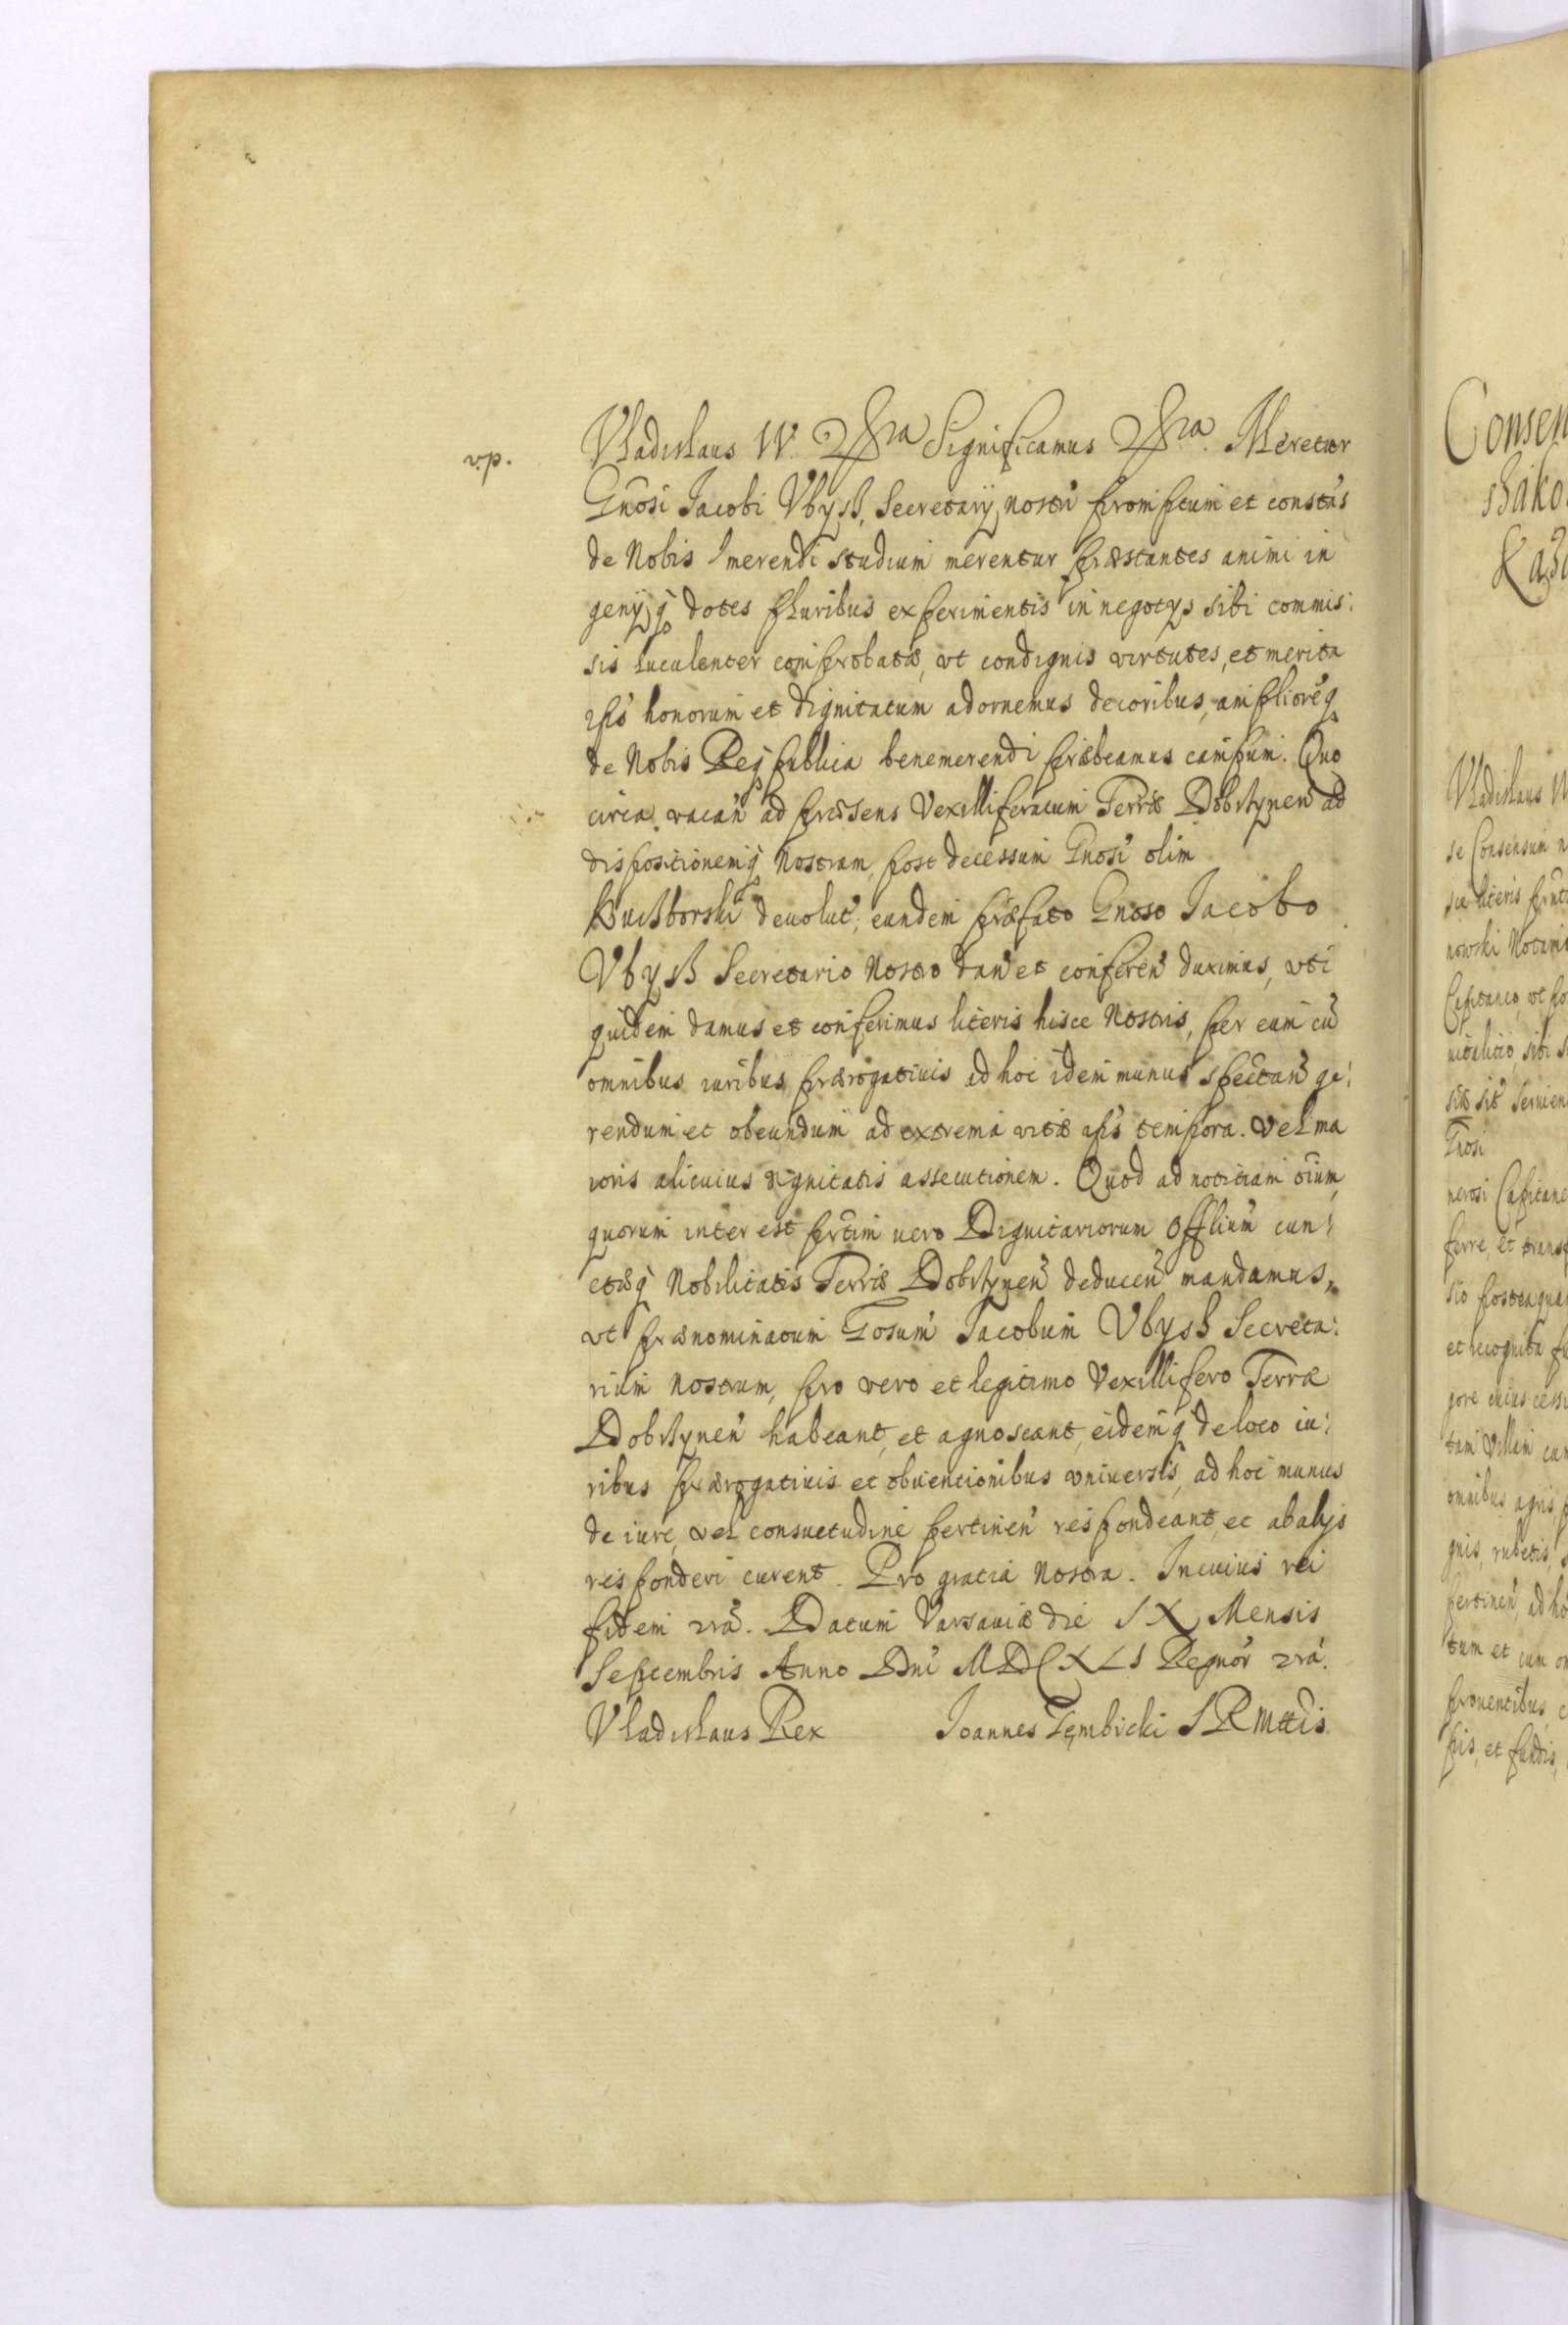 Vladislaus IV. etra Significamus etra. Meretur
Gnosi Jacobi Vbysz, Secretarij nostri promptum et constās
de Nobis merendi studium merentur præstantes animi in
genijq dotes pluribus experimentis in negotys sibi commis:
sis luculenter comprobatæ, vt condignis virtutes, et merita
ipsˀ honorum et dignitatum adornemus decoribus, amplioreq
de Nobis Reiqpublica benemerendi præbeamus campum. Quo
circa vacanˀ ad præsens Vexilliferatum Terræ Dobrzynenˀ ad
dispositionemq Nostram, post decessum Gnosi olim
devolutˀ, eundem præfato Gnoso Jacobo
Vbysz Secretario Nostro danˀ et conferenˀ duximus, vti
quidem damus et conferimus literis hisce Nostris, per eum cū
omnibus iuribus prærogatiuis ad hoc idem munus spectanˀ ge:
rendum et obeundum ad extrema vitæ ipsˀ tempora. Vel ma
ioris alicuius dignitatis assecutionem. Quod ad notitiam oium,
quorum interest pertim uero Dignitariorum Offlium cun:
ctæq Nobilitatis Terræ Dobrzynenˀ deducenˀ mandamus,
vt prænominatum Gosum Jacobum Vbysz Secreta:
rium Nostrum, pro vero et legitimo Vexillifero Terræ
Dobrzynenˀ habeant, et agnoscant, eidemq de loco iu:
ribus prærogatiuis et obuentionibus vniuersis, ad hoc munus
de iure, vel consuetudine pertinenˀ respondeant, et ab alijs
responderi curent. Pro gratia Nostra. In cuius rei
fidem etrā. Datum Varsauiæ die IX Mensis
Septembris Anno Dni MDCXLI Regnorˀ etrā.
Vladislaus Rex Joannes Gembicki SRMttis.
Consen
Vladislaus
se Consensum n
nowski
Gnosi
nerosi Capitane
ferre, et trans
et recognita
omnibus agris,
gnis, rubetis,
pertinenˀ, ad ho
tum et cum o
prouentibus,